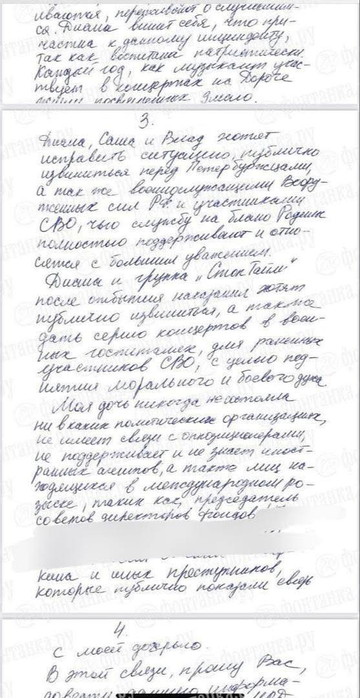 иваются, переживают о случившем-
ся. Диана винит себя, что при-
частна к данному инциденту,
так как воспитана патриотически.
Каждый год, как музыканты учас-
твует в концертах на Дороге
жизни посвященных
3.
Диана, Саша и Влад хотят
исправить ситуацию, публично
извиниться перед Петербуржцами,
а так же военнослужащими Воору-
женных сил РФ и участниками
СВО, чью службу на благо Родины
полностью поддерживают и отно-
сятся с большим уважением.
Диана и группа „Стоптайм"
после отбытия наказания хотят
публично извиниться, а также
дать серию концертов в воен-
ных госпиталях, для раненных
участников СВО, с целью под-
нятия морального и боевого духа
Моя дочь никогда не состояла
ни в каких политических организациях,
не имеет связи с оппозиционерами,
не поддерживает и не знает иност-
ранных агентов, а также лиц на-
ходящихся в международном ро-
зыске, таких как, председатель
советов директоров фондов
кина и иных преступников,
которые публично показали связь
4.
с моей дочерью.
В этой связи, прошу Вас,
фонтанка.ру